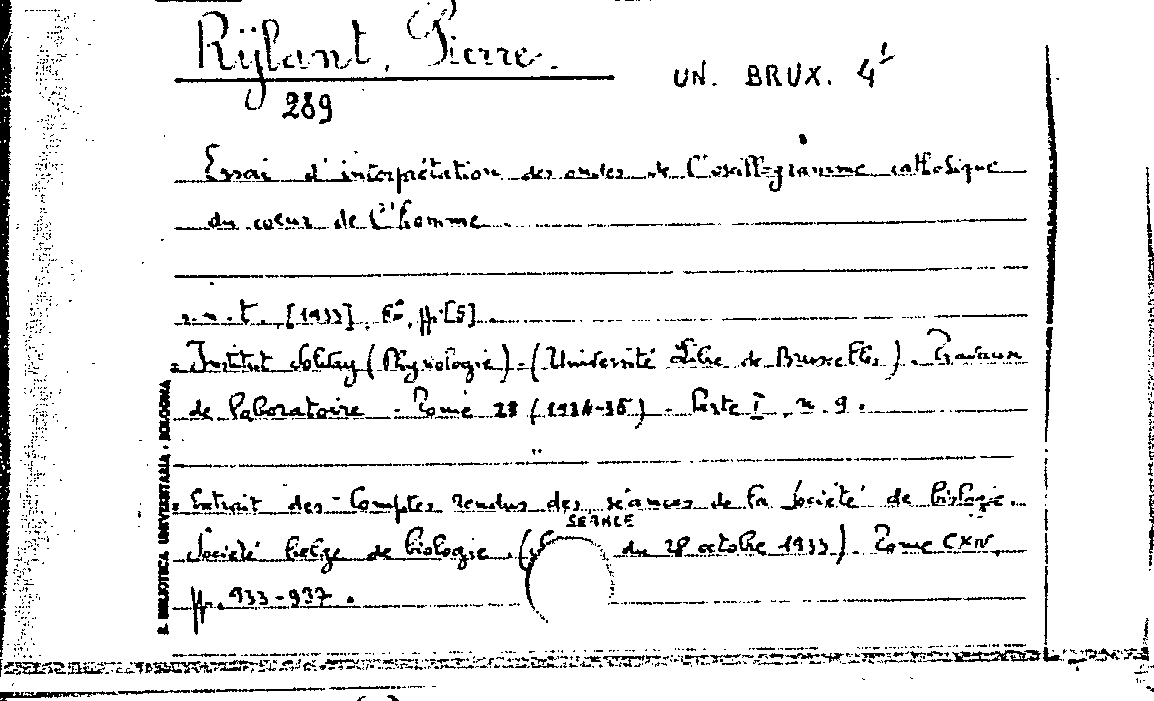 Rÿlant, Pierre.
UN. BRUX. 4¹
289
Essai d'interprétation des ondes de l'oscillogramme cathosique
du coeur de l'homme.
s.n.t. [1933], 8°, pp. [5].
= Institut Solvay (Physiologie) - (Université Libre de Bruxelles). Travaux
de laboratoire - Tome 28 (1934-35) - Parte I, n. 9.
= Extrait des Comptes rendus des séances de la Société de biologie.
SEANCE
Société belge de biologie. ( du 28 octobre 1933). Tome CXIV,
pp. 933-937.
R. BIBLIOTECA UNIVERSITARIA - BOLOGNA